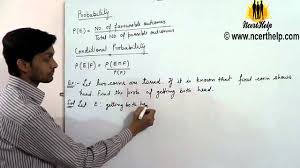 NcertHelp
© www.ncerthelp.com
Probability
P(E) = No of favourable outcomes
Total No. of possible outcomes
Conditional Probability
P(E|F) = P(E∩F)
P(F)
Ex:- Let two coins are tossed. If it is known that first coin shows
head. Find the prob of getting both head.
Sol Let E: getting both he